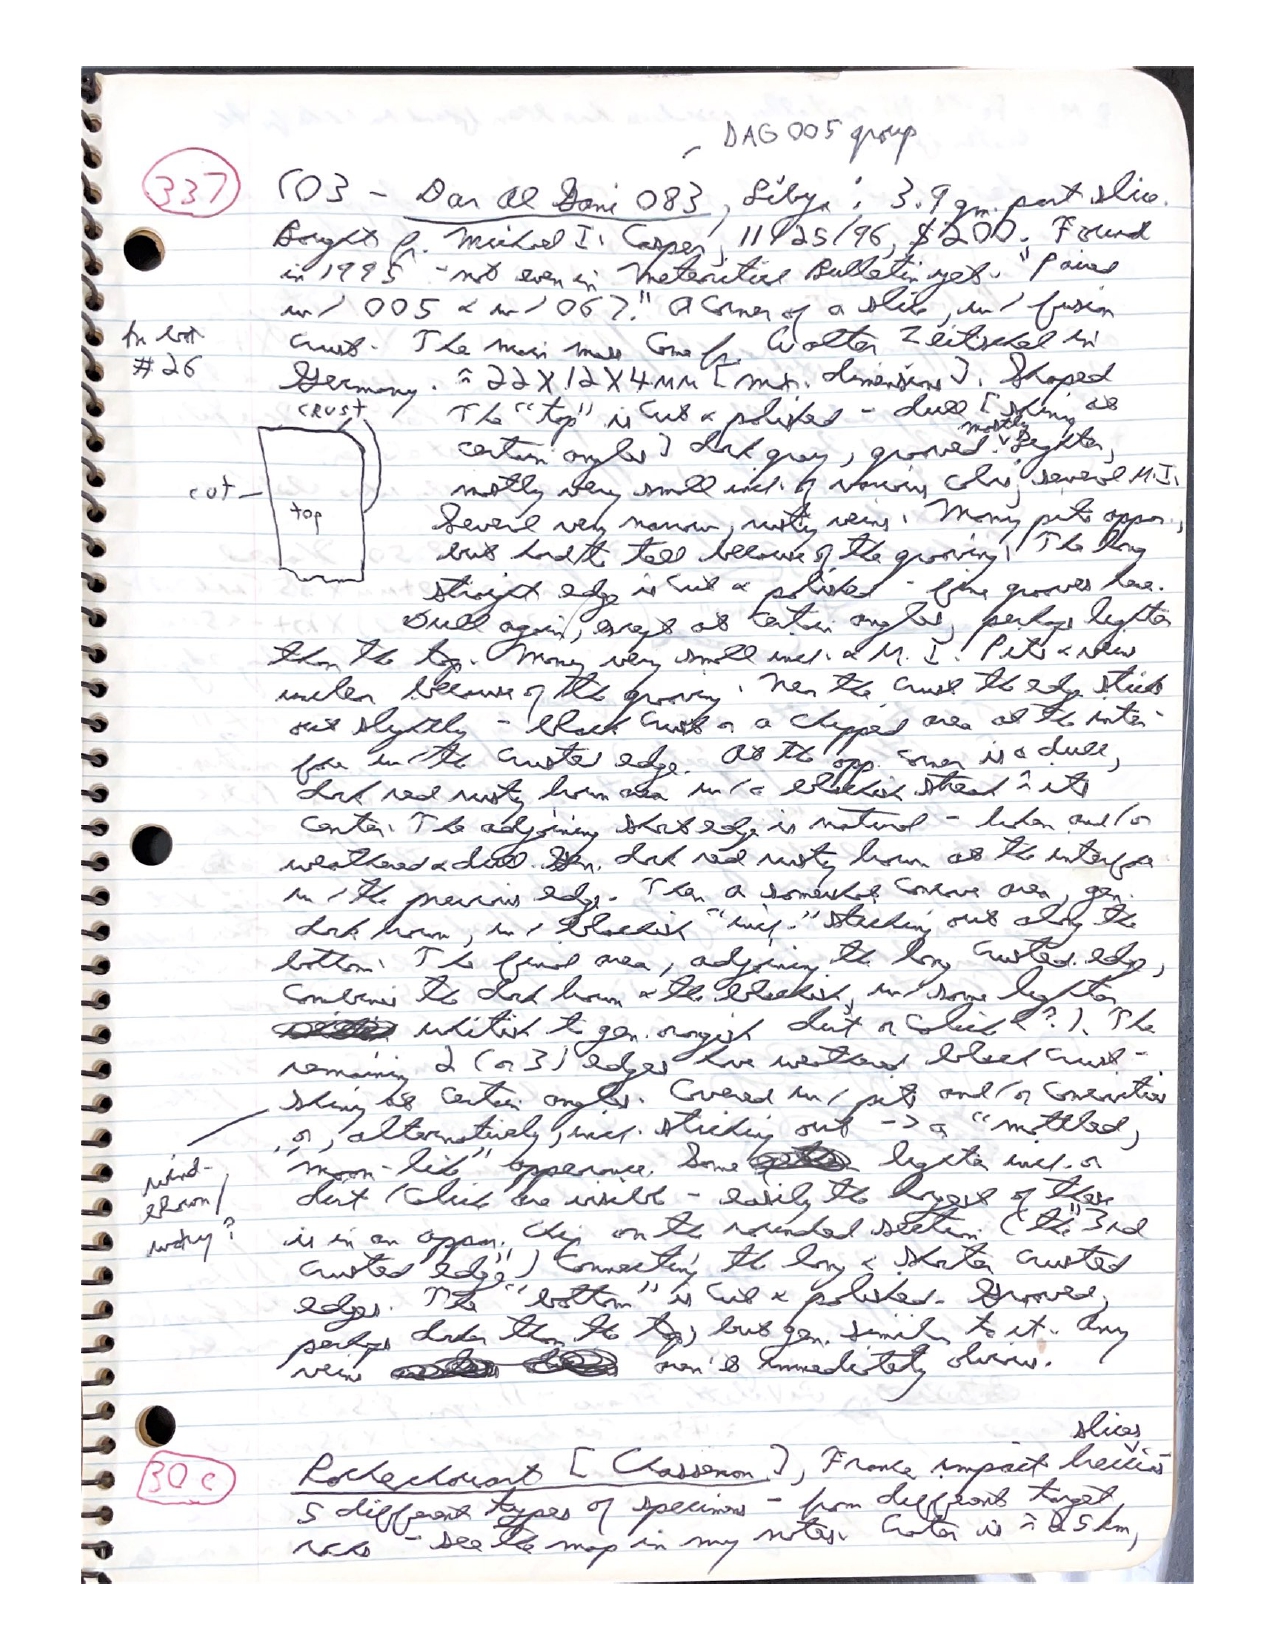 DAG 005 group
337 CO3 - Dar al Gani 083, Libya; 3.9 gm. part slice.
Bought fr. Michael I. Casper, 11/25/96, $200. Found
in 1995 - not even in Meteoritical Bulletin yet. "Paired
w/ 005 & w/ 067." A corner of a slice, w/ fusion
crust. The main mass came fr. Walter Zeitschel in
In lot
#26
Germany. ≈ 22X12X4MM [max. dimensions]. Shaped
CRUST
cut
top
The "top" is cut & polished - dull [shiny at
certain angles] dark gray, grooved. mostly Lighter,
mostly very small incl. of various colors, several M.I.
Several very narrow, rusty veins. Many pits appar.,
but hard to tell because of the grooving. The long
straight edge is cut & polished - fine grooves here.
Dull again, except at certain angles, perhaps lighter
than the top. Many very small incl. & M.I. Pits & veins
unclear because of the grooving. Near the crust the edge sticks
out slightly - black crust on a chipped area at the inter-
face w/ the crusted edge. At the opp. corner is a dull,
dark red rusty brown area w/ a blackish streak ≈ its
center. The adjoining short edge is natural - broken and/or
weathered & dull. Gen. dark red rusty brown at the interface
w/ the previous edge. Then a somewhat concave area, gen.
dark brown, w/ blackish "incl." sticking out along the
bottom. The final area, adjoining the long crusted edge,
combines the dark brown & the blackish, w/ some lighter
whitish to gen. orangish dirt or caliche (?). The
remaining 2 (or 3) edges have weathered black crust -
shiny at certain angles. Covered w/ pits and/or concavities
or, alternatively, incl. sticking out -> a "mottled,
"moon-like" appearance. Some lighter incl. or
wind-
blown/
watery?
dirt/caliche are visible - easily the largest of these
is in an appar. chip on the rounded section (the "3rd
crusted edge") connecting the long & shorter crusted
edges. The "bottom" is cut & polished. Grooved,
perhaps darker than the top, but gen. similar to it. Any
veins aren't immediately obvious.
30c Rochechouart [Chassenon], France impact breccia slices
5 different types of specimens - from different target
rocks - see the map in my notes. Crater is ≈ 25 km,